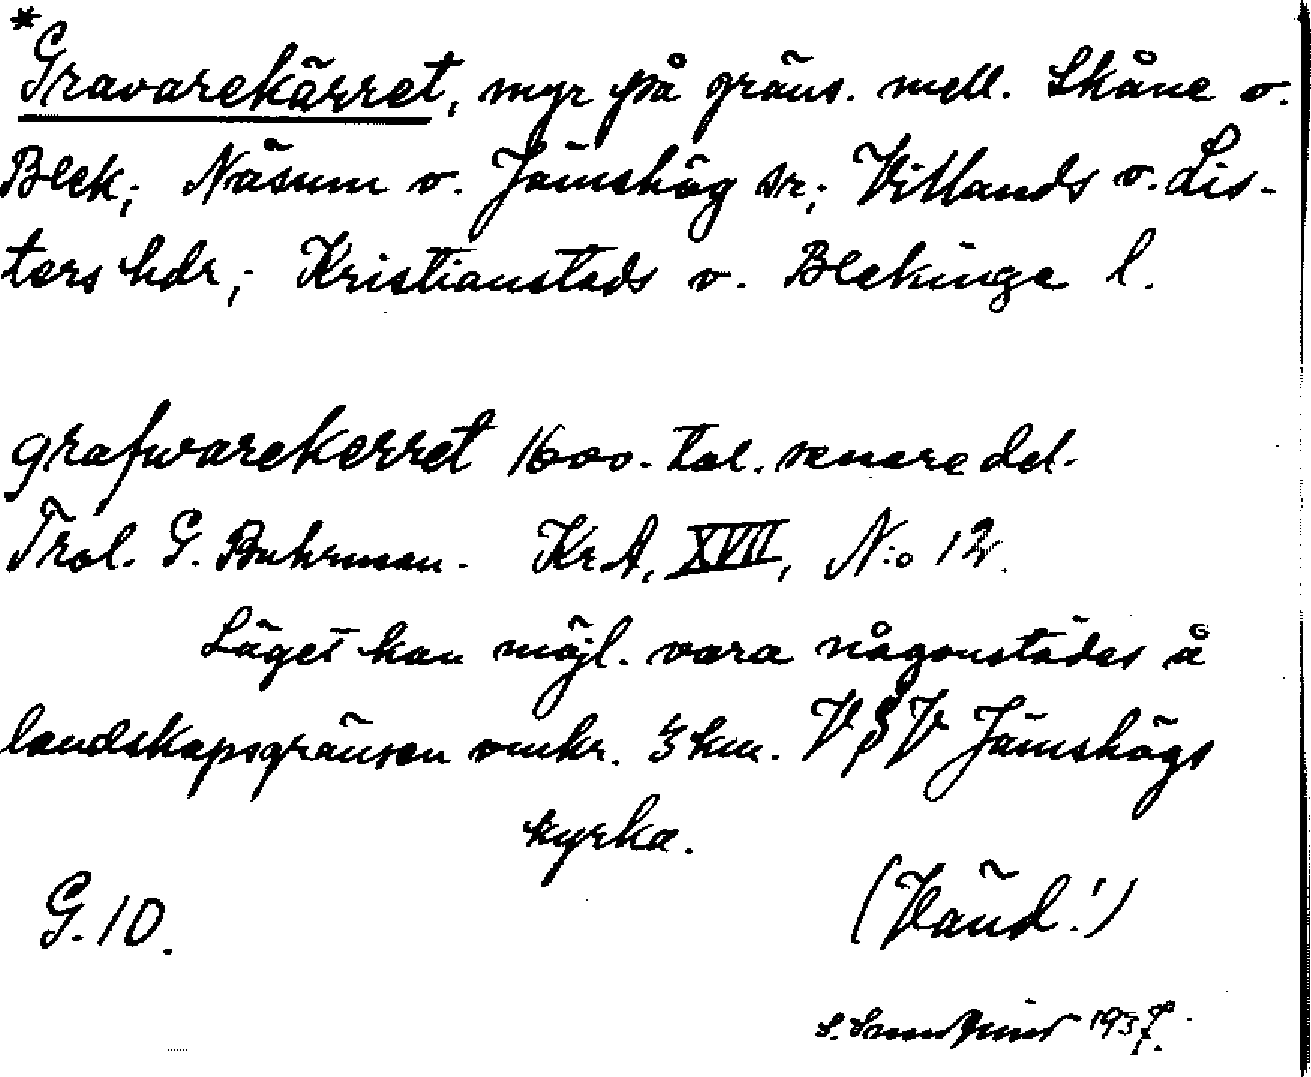 *Gravarekärret, myr på gräns. mell. Skåne o.
Blek; Näsum o. Jämshög sr; Villands o. Lis-
ters hdr; Kristianstads o. Blekinge l.
grafwarekerret 1600-tal. senare del.
Trol. G. Buhrman. Kr.A. XVII, N:o 12.
Läget kan möjl. vara någonstädes å
landskapsgränsen omkr. 3 km. V§V Jämshögs
kyrka.
G. 10.
(Vänd!)
1937.